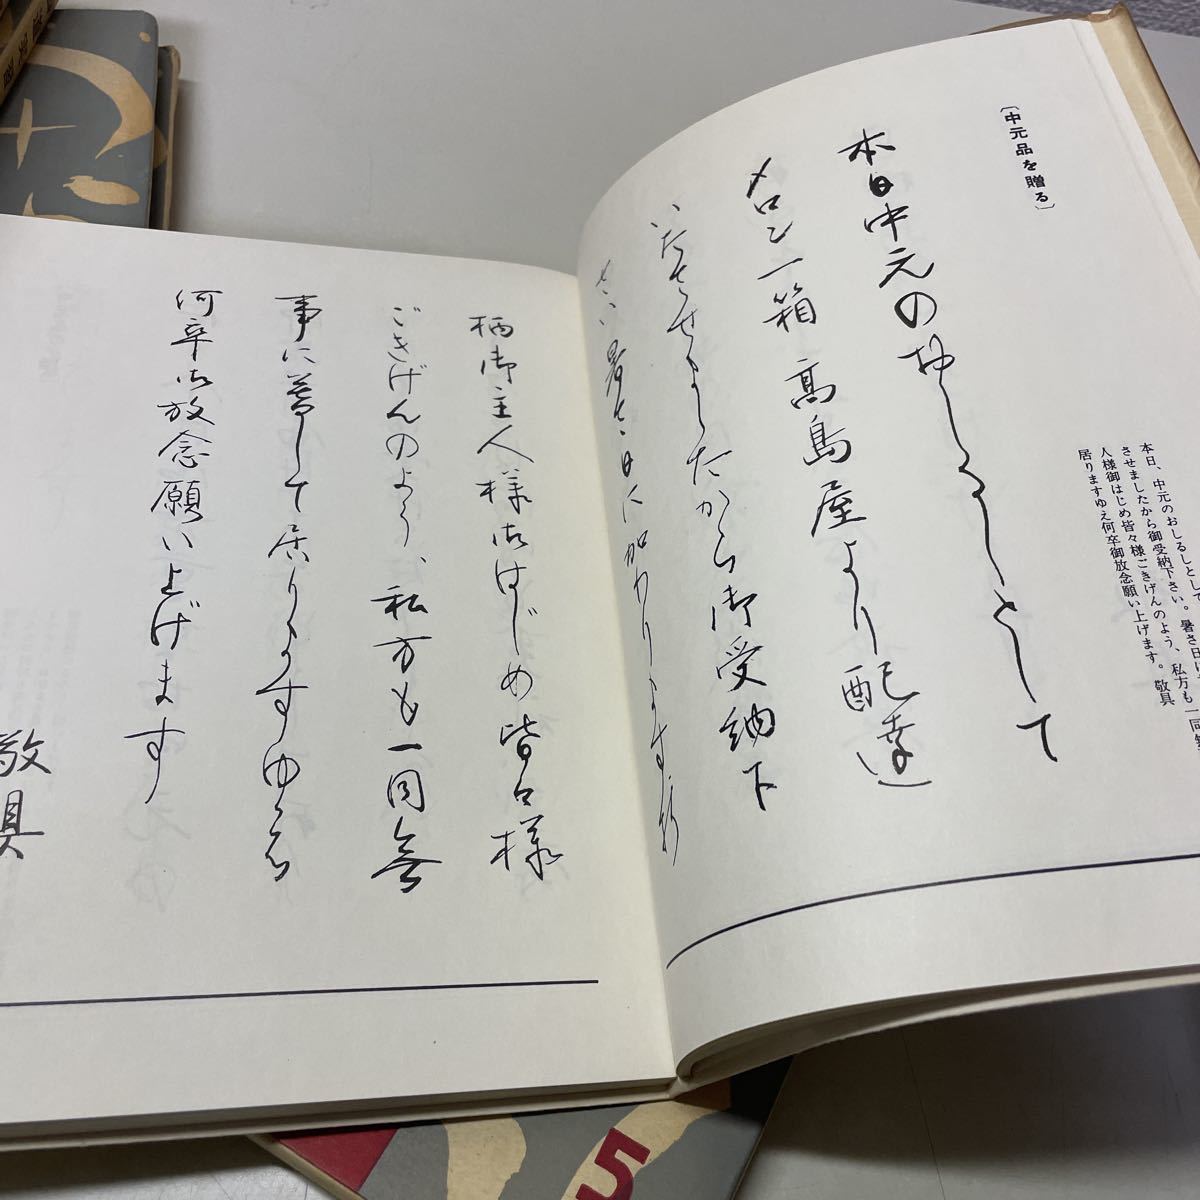 〔中元品を贈る〕
本日中元のおしるしとして
メロン一箱高島屋より配達
いたさせましたから御受納下
さい暑さ日に加わります折
柄御主人様御はじめ皆々様
ごきげんのよう、私方も一同無
事に暮して居りますゆえ
何卒御放念願い上げます
敬具
本日、中元のおしるしとして
させましたから御受納下さい。暑さ日に
人様御はじめ皆々様ごきげんのよう、私方も一同無
居りますゆえ何卒御放念願い上げます。敬具
5